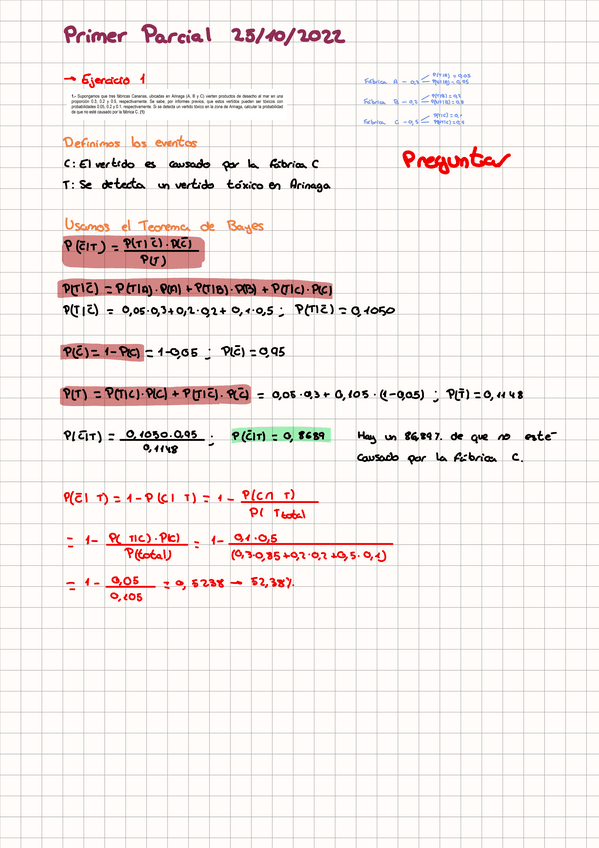 Primer Parcial 25/10/2022
→ Ejercicio 1
1.- Supongamos que tres fábricas Canarias, ubicadas en Arinaga (A, B y C) vierten productos de desecho al mar en una
proporción 0.3, 0.2 y 0.5, respectivamente. Se sabe, por informes previos, que estos vertidos pueden ser tóxicos con
probabilidades 0.05, 0.2 y 0.1, respectivamente. Si se detecta un vertido tóxico en la zona de Arinaga, calcular la probabilidad
de que no esté causado por la fábrica C. (1)
Fábrica A - 0,3 P(T|A) = 0,05
Fábrica B - 0,2 P(T|B) = 0,2
Fábrica C - 0,5 P(T|C) = 0,1
Preguntar
Definimos los eventos
C: El vertido es causado por la fábrica C
T: Se detecta un vertido tóxico en Arinaga
Usamos el Teorema de Bayes
P(C̄|T) = P(T|C̄)·P(C̄) / P(T)
P(T|C̄) = P(T|A)·P(A) + P(T|B)·P(B) + P(T|C)·P(C)
P(T|C̄) = 0,05·0,3+0,2·0,2+0,1·0,5 ; P(T|C̄) = 0,1050
P(C̄) = 1-P(C) = 1-0,05 ; P(C̄) = 0,95
P(T) = P(T|C)·P(C) + P(T|C̄)·P(C̄) = 0,05·0,3 + 0,105·(1-0,05) ; P(T) = 0,1148
P(C̄|T) = 0,1050·0,95 / 0,1148 ; P(C̄|T) = 0,8689 Hay un 86,89% de que no esté
causado por la fábrica C.
P(C̄|T) = 1-P(C|T) = 1 - P(C∩T) / P(Ttotal
= 1- P(T|C)·P(C) / P(total) = 1- 0,1·0,5 / (0,3·0,05+0,2·0,2+0,5·0,1)
= 1 - 0,05 / 0,105 = 0,5238 → 52,38%